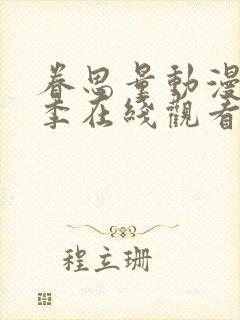 眷思量動漫
季在綫觀看
程立珊